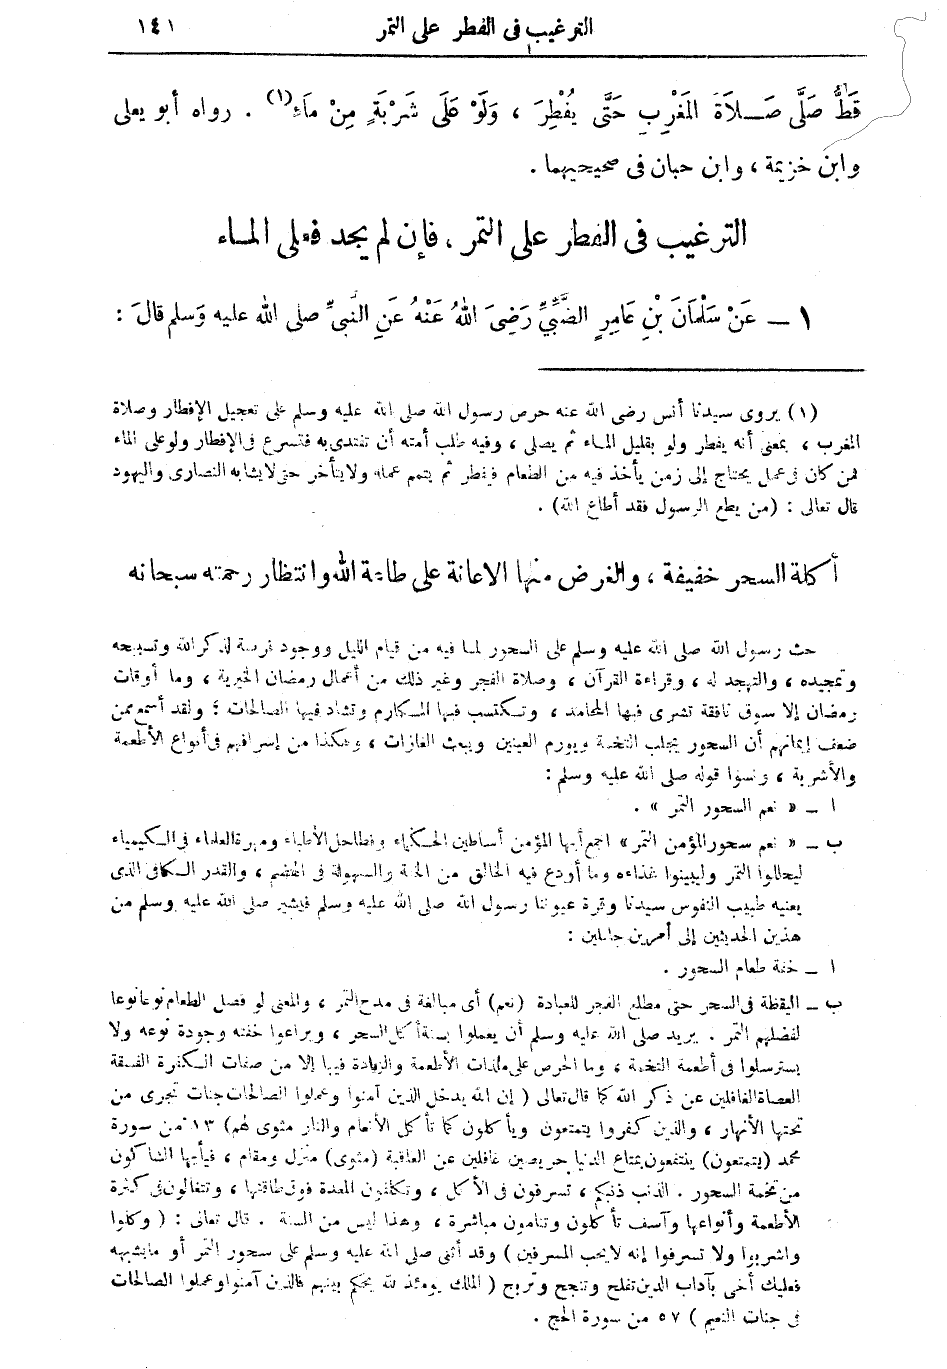 الترغيب فى الفطر على التمر ١٤١
قَطُّ صَلَّى صَـلَاةَ المَغْرِبِ حَتَّى يُفْطِرَ ، وَلَوْ عَلَى شَرْبَةٍ مِنْ مَاءٍ (١) . رواه أبو يعلى
وابن خزيمة ، وابن حبان فى صحيحيهما .
الترغيب فى الفطر على التمر ، فإن لم يجد فعلى المـاء
١ — عَنْ سَلْمَانَ بْنِ عَامِرٍ الضَّبِّيِّ رَضِىَ اللهُ عَنْهُ عَنِ النَّبِىِّ صلى الله عليه وَسلم قالَ :
(١) يروى سيدنا أنس رضى الله عنه حرص رسول الله صلى الله عليه وسلم على تعجيل الإفطار وصلاة
المغرب ، بمعنى أنه يفطر ولو بقليل المـاء ثم يصلى ، وفيه طلب أمته أن تقتدى به فتسرع فى الإفطار ولو على الماء
فمن كان فى عمل يحتاج إلى زمن يأخذ فيه من الطعام فيفطر ثم يتمم عمله ولا يتأخر حتى لا يشابه النصارى واليهود
قال تعالى : (من يطع الرسول فقد أطاع الله) .
أكلة السحر خفيفة ، والغرض منها الاعانة على طاعة الله وانتظار رحمته سبحانه
حث رسول الله صلى الله عليه وسلم على السحور لمـا فيه من قيام الليل ووجود فرصة لذكر الله وتسبيحه
وتمجيده ، والتهجد له ، وقراءة القرآن ، وصلاة الفجر وغير ذلك من أعمال رمضان الخيرية ، وما أوقات
رمضان إلا سوق نافقة تشرى فيها المحامد ، وتـكتسب فيها المـكارم وتشاد فيها الصالحات ؛ ولقد أسمع ممن
ضعف إيمانهم أن السحور يجلب التخمة ويورم العينين ويبعث الغازات ، وهكذا من إسرافهم فى أنواع الأطعمة
والأشربة ، ونسوا قوله صلى الله عليه وسلم :
ا — « نعم السحور التمر » .
ب — « نعم سحور المؤمن التمر » اجمع أيها المؤمن أساطين الحكماء وفطاحل الأطباء ومهرة العلماء فى الـكيمياء
ليحللوا التمر وليبينوا غذاءه وما أودع فيه الخالق من الخفة والسهولة فى الهضم ، والقدر الـكافى الذى
يعنيه طبيب النفوس سيدنا وقرة عيوننا رسول الله صلى الله عليه وسلم فيشير صلى الله عليه وسلم من
هذين الحديثين إلى أمرين جليلين :
ا — خفة طعام السحور .
ب — اليقظة فى السحر حتى مطلع الفجر للعبادة (نعم) أى مبالغة فى مدح التمر ، والمعنى لو فصل الطعام نوعا نوعا
لفضلهم التمر . يريد صلى الله عليه وسلم أن يعملوا بسنة أكل السحر ، ويراعوا خفته وجودة نوعه ولا
يسترسلوا فى أطعمة التخمة ، وما الحرص على ملذات الأطعمة والزيادة فيها إلا من صفات الـكفرة الفسقة
العصاة الغافلين عن ذكر الله كما قال تعالى ( إن الله يدخل الذين آمنوا وعملوا الصالحات جنات تجرى من
تحتها الأنهار ، والذين كفروا يتمتعون ويأكلون كما تأكل الأنعام والنار مثوى لهم) ١٣ من سورة
محمد (يتمتعون) ينتفعون بمتاع الدنيا حريصين غافلين عن العاقبة (مثوى) منزل ومقام ، فيأيها الشاكون
من تخمة السحور . الذنب ذنبكم ، تسرفون فى الأكل ، وتكلفون المعدة فوق طاقتها ، وتتغالون فى كثرة
الأطعمة وأنواعها وآسف تأكلون وتنامون مباشرة ، وهذا ليس من السنة . قال تعالى : ( وكلوا
واشربوا ولا تسرفوا إنه لا يحب المسرفين ) وقد أثنى صلى الله عليه وسلم على سحور التمر أو ما يشبهه
فعليك أخى بآداب الدين تفلح وتنجح وتربح ( الملك يومئذ لله يحكم بينهم فالذين آمنوا وعملوا الصالحات
فى جنات النعيم ) ٥٧ من سورة الحج .